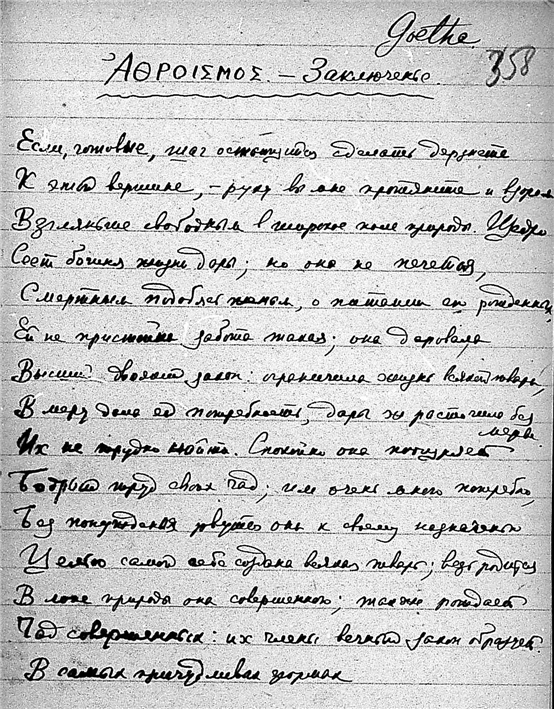 Goethe
358
ἈΘΡΟΙΣΜΟΣ. – Заключенье.
Если, готовые, шаг остающийся сделать дерзнете
К этой вершине, – руку вы мне протяните и взором
Взгляните свободным в широкое поле природы. Щедро
Сеет богиня жизни дары; но она не печется,
Смертным подобясь женам, о питании ею рожденных
Ей не пристойна забота такая; она даровала
Высший двоякий закон: ограничила жизнь всякой твари,
В меру дала ей потребность, дары ж расточила без
меры.
Их не трудно найти. Спокойно она поощряет
Бодрый труд своих чад; им очень много потребно,
Без понужденья рвутся они к своему назначенью
Целью самой себе создана всякая тварь; ведь родится
В лоне природы она совершенною; также рождает
Чад совершенных: их члены вечный закон образует.
В самых причудливых формах